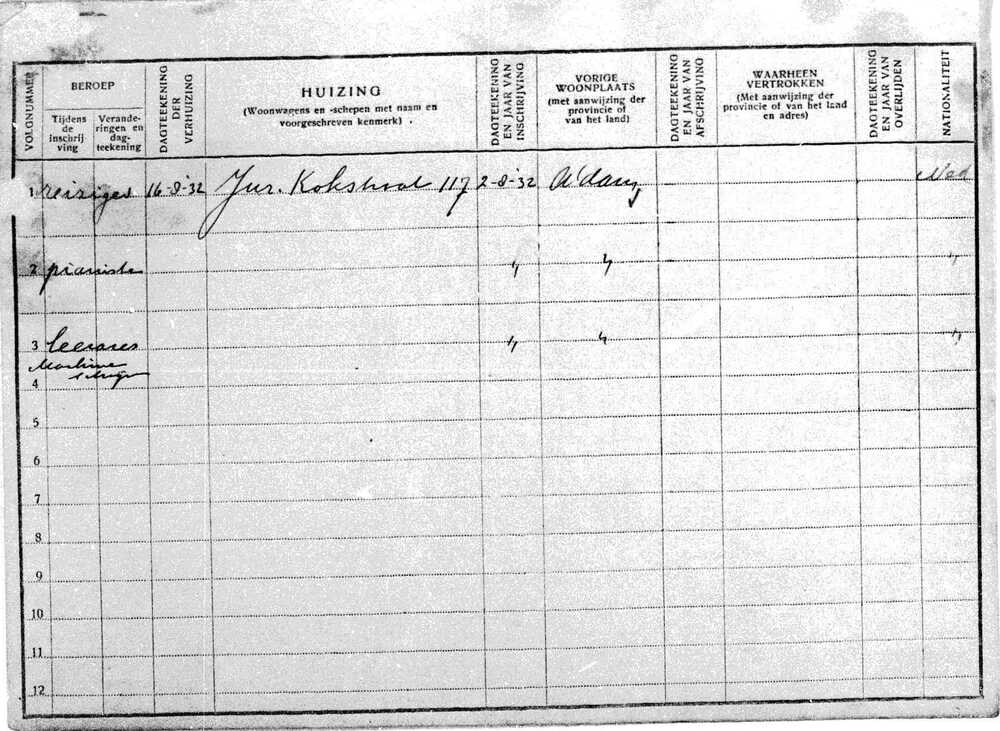 VOLGNUMMER
BEROEP
Tijdens
de
inschrij
ving
Verande-
ringen en
dag-
teekening
DAGTEEKENING
DER
VERHUIZING
HUIZING
(Woonwagens en -schepen met naam en
voorgeschreven kenmerk)
DAGTEEKENING
EN JAAR VAN
INSCHRIJVING
VORIGE
WOONPLAATS
(met aanwijzing der
provincie of
van het land)
DAGTEEKENING
EN JAAR VAN
AFSCHRIJVING
WAARHEEN
VERTROKKEN
(Met aanwijzing der
provincie of van het land
en adres)
DAGTEEKENING
EN JAAR VAN
OVERLIJDEN
NATIONALITEIT
1 reiziger 16-8-32 Jur. Kokstraat 117 2-8-32 A'dam Ned
2 pianiste " " "
3 leerares " " "
Machine
schrijv
4
5
6
7
8
9
10
11
12